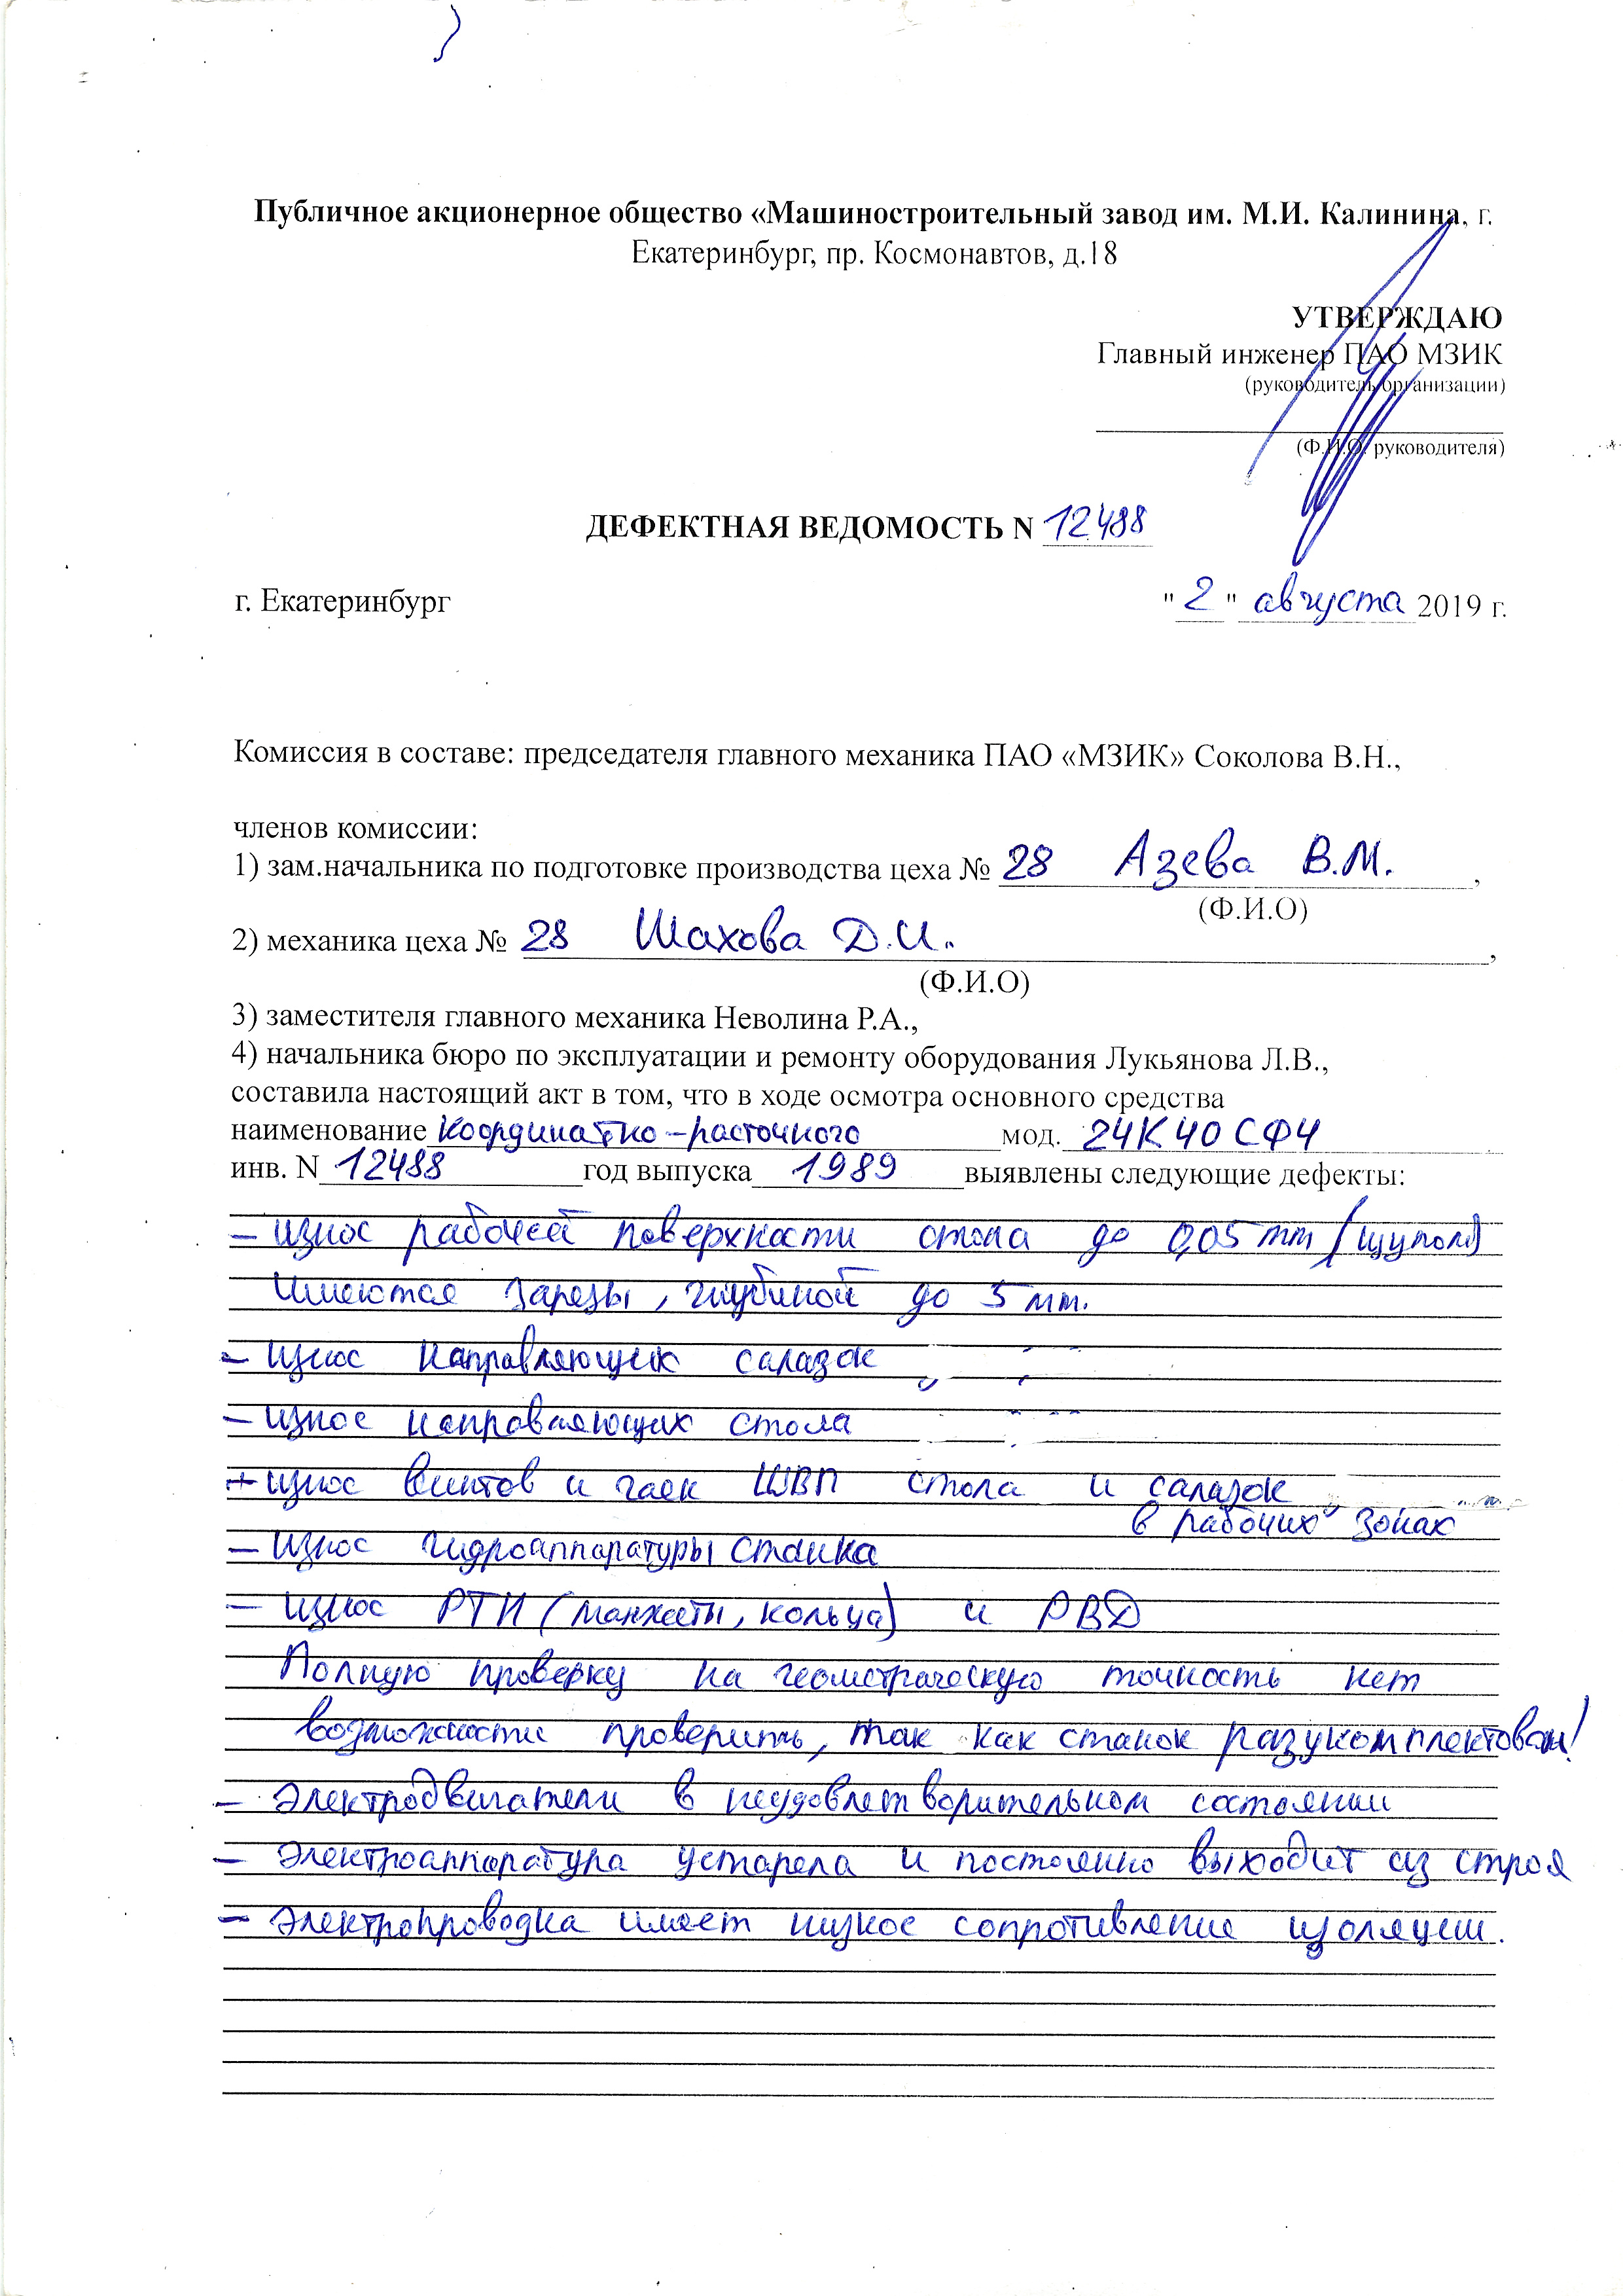 Публичное акционерное общество «Машиностроительный завод им. М.И. Калинина, г.
Екатеринбург, пр. Космонавтов, д.18
УТВЕРЖДАЮ
Главный инженер ПАО МЗИК
(руководитель организации)
(Ф.И.О. руководителя)
ДЕФЕКТНАЯ ВЕДОМОСТЬ N 12488
г. Екатеринбург "2" августа 2019 г.
Комиссия в составе: председателя главного механика ПАО «МЗИК» Соколова В.Н.,
членов комиссии:
1) зам.начальника по подготовке производства цеха № 28 Азева В.М. ,
(Ф.И.О)
2) механика цеха № 28 Шахова Д.И. ,
(Ф.И.О)
3) заместителя главного механика Неволина Р.А.,
4) начальника бюро по эксплуатации и ремонту оборудования Лукьянова Л.В.,
составила настоящий акт в том, что в ходе осмотра основного средства
наименование координатно-расточного мод. 24К40СФ4
инв. N 12488 год выпуска 1989 выявлены следующие дефекты:
- износ рабочей поверхности стола до 0,05 мм (щупом)
имеются зарезы, глубиной до 5 мм.
- износ направляющих салазок
- износ направляющих стола
+ износ винтов и гаек ШВП стола и салазок
в рабочих зонах
- износ гидроаппаратуры станка
- износ РТИ (манжеты, кольца) и РВД
Полную проверку на геометрическую точность нет
возможности проверить, так как станок разукомплектован!
- Электродвигатели в неудовлетворительном состоянии
- Электроаппаратура устарела и постоянно выходит из строя
- Электропроводка имеет низкое сопротивление изоляции.